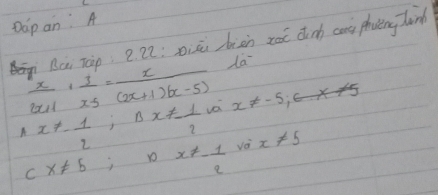 Đáp án: A
Bài Tập: 2.22: Điều kiện xác định của phương trình
x/2x+1 + 1/x-5 = x/(2x+1)(x-5) là
A x ≠ -1/2 ; B x ≠ -1/2 và x ≠ -5; C x ≠ 5
C x ≠ 5 ; D x ≠ -1/2 và x ≠ 5